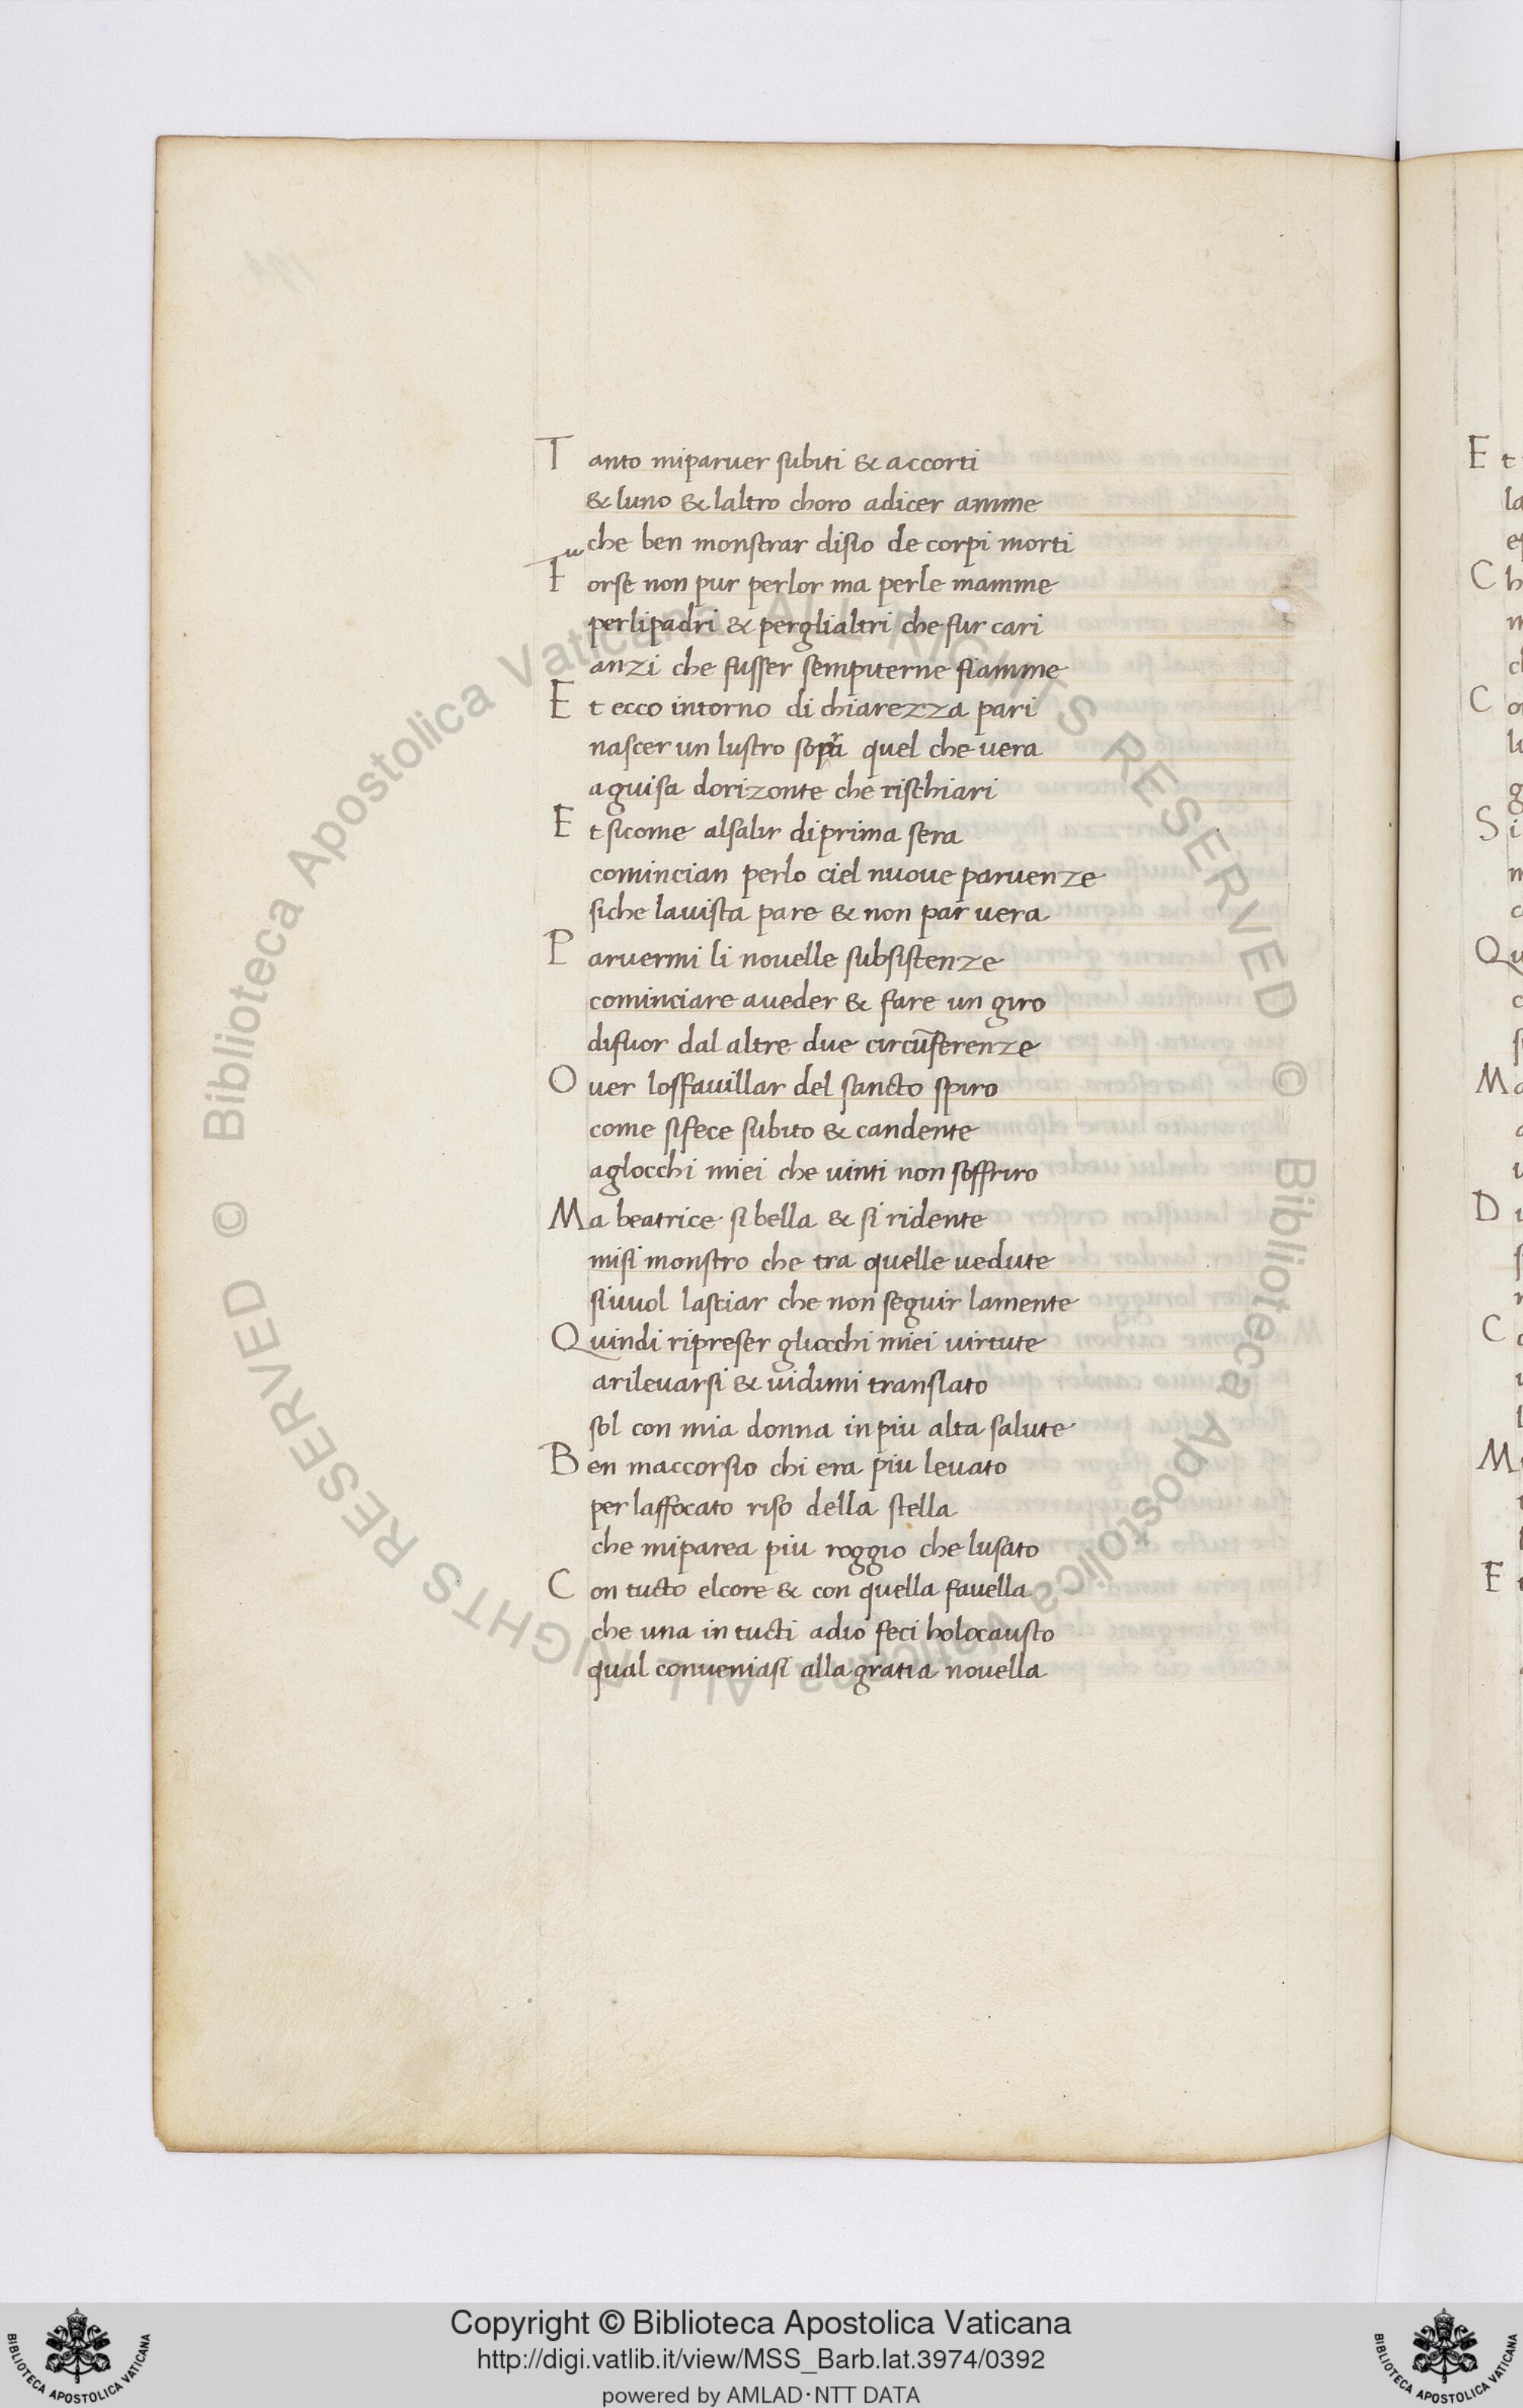 Tanto miparuer subiti & accorti
& luno & laltro choro adicer amme
che ben monstrar disio de corpi morti
Forse non pur perlor ma perle mamme
perlipadri & perglialtri che fur cari
anzi che fusser sempiterne fiamme
Et ecco intorno di chiarezza pari
nascer un lustro sopra quel che vera
aguisa dorizonte che rischiari
Et sicome alsalir diprima sera
comincian perlo ciel nuove paruenze
siche lavista pare & non par vera
Paruermi li novelle subsistenze
cominciare aveder & fare un giro
difuor dal altre due circūferenze
Over losfavillar del sancto spiro
come sifece subito & candente
aglocchi miei che vinti non soffriro
Ma beatrice si bella & si ridente
misi monstro che tra quelle vedute
sivuol lasciar che non seguir lamente
Quindi ripreser gliocchi miei virtute
arilevarsi & vidimi translato
sol con mia donna in piu alta salute
Ben maccorsio chi era piu levato
per laffocato riso della stella
che miparea piu roggio che lusato
Con tucto elcore & con quella favella
che una in tucti adio feci holocausto
qual conveniasi alla gratia novella
Copyright © Biblioteca Apostolica Vaticana
http://digi.vatlib.it/view/MSS_Barb.lat.3974/0392
powered by AMLAD·NTT DATA